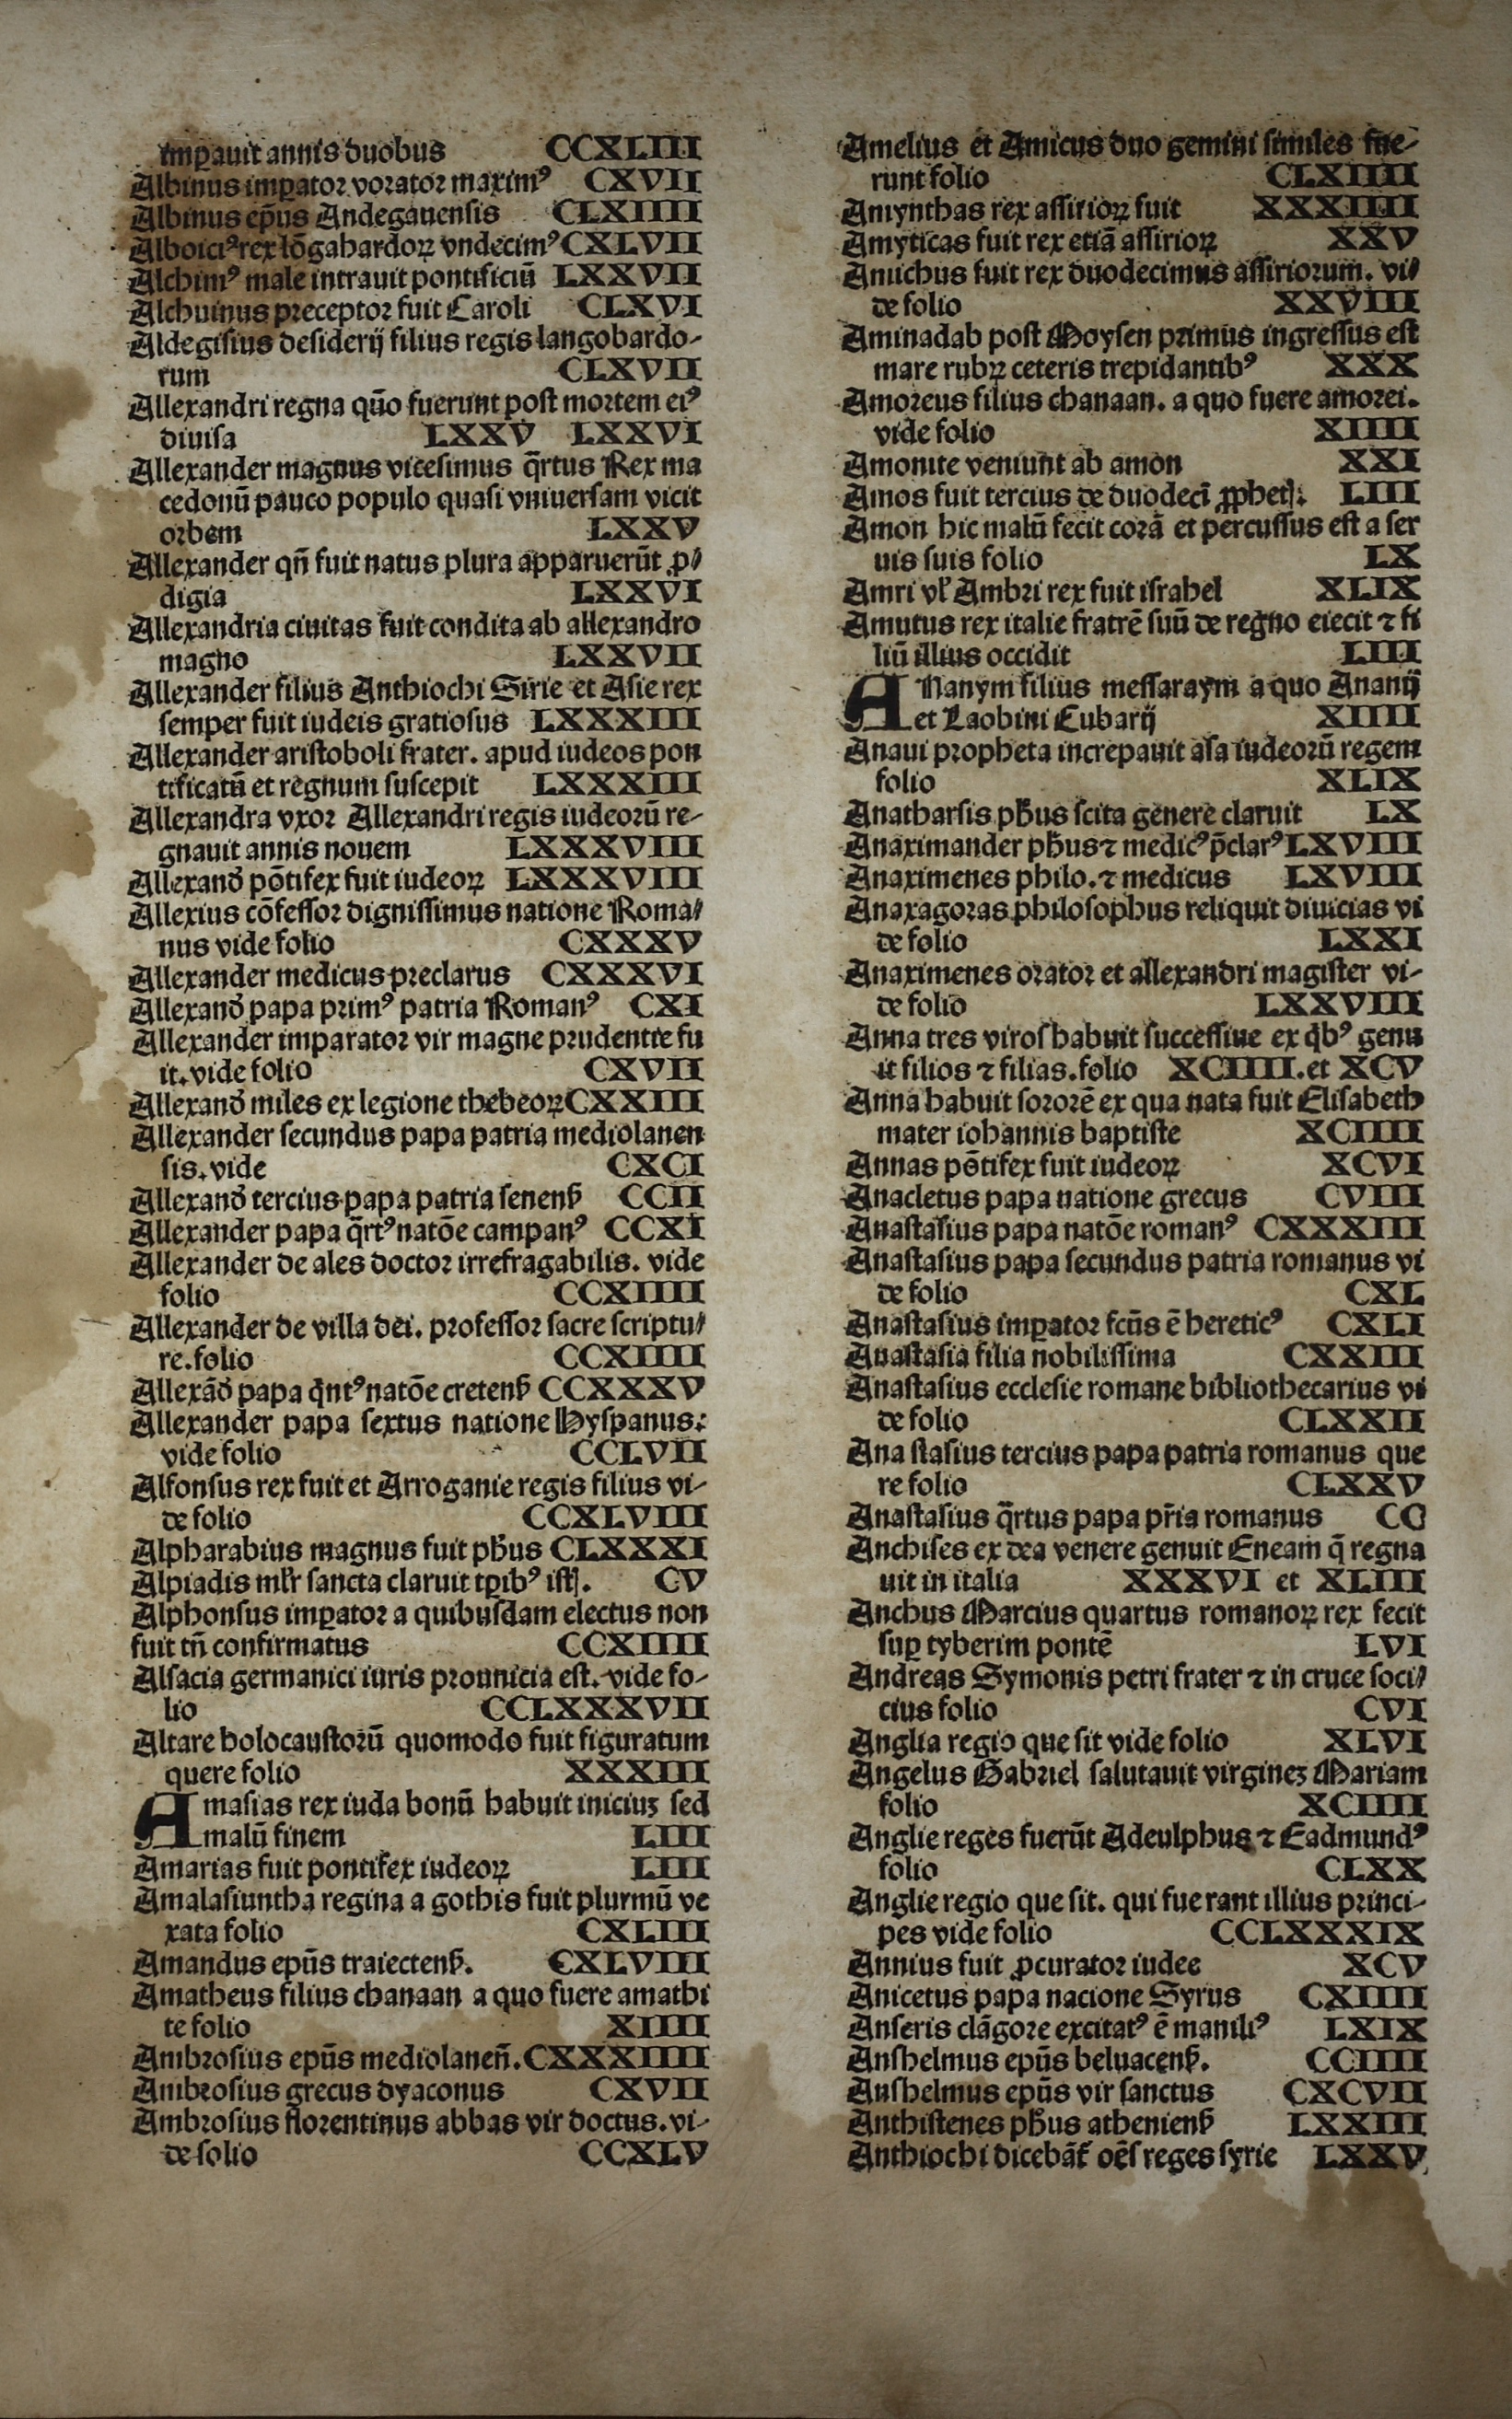 imꝑauit annis duobus CCXLIII
Albinus imꝑator vorator maximꝰ CXVII
Albinus ep̄us Andegauensis CLXIIII
Alboiciꝰ rex lōgabardoꝝ vndecimꝰ CXLVII
Alchimꝰ male intrauit pontificiū LXXVII
Alchuinus preceptor fuit Caroli CLXVI
Aldegisius desiderij filius regis langobardo-
rum CLXVII
Allexandri regna qūo fuerunt post mortem eiꝰ
diuisa LXXV LXXVI
Allexander magnus vicesimus q̄rtus Rex ma
cedonū pauco populo quasi vniuersam vicit
orbem LXXV
Allexander qn̄ fuit natus plura apparuerūt ꝓ-
digia LXXVI
Allexandria ciuitas fuit condita ab allexandro
magno LXXVII
Allexander filius Anthiochi Sirie et Asie rex
semper fuit iudeis gratiosus LXXXIII
Allexander aristoboli frater. apud iudeos pon
tificatū et regnum suscepit LXXXIII
Allexandra vxor Allexandri regis iudeorū re-
gnauit annis nouem LXXXVIII
Allexand̄ pōtifex fuit iudeoꝝ LXXXVIII
Allexius cōfessor dignissimus natione Roma-
nus vide folio CXXXV
Allexander medicus preclarus CXXXVI
Allexand̄ papa primꝰ patria Romanꝰ CXI
Allexander imparator vir magne prudentie fu
it. vide folio CXVII
Allexand̄ miles ex legione thebeoꝝ CXXIII
Allexander secundus papa patria mediolanen
sis. vide CXCI
Allexand̄ tercius papa patria senenß CCII
Allexander papa q̄rtꝰ natōe campanꝰ CCXI
Allexander de ales doctor irrefragabilis. vide
folio CCXIIII
Allexander de villa dei. professor sacre scriptu-
re. folio CCXIIII
Allexād̄ papa q̄ntꝰ natōe cretenß CCXXXV
Allexander papa sextus natione Hyspanus:
vide folio CCLVII
Alfonsus rex fuit et Arroganie regis filius vi-
de folio CCXLVIII
Alpharabius magnus fuit pħus CLXXXI
Alpiadis ml̄r sancta claruit tꝑibꝰ istꝭ. CV
Alphonsus imꝑator a quibusdam electus non
fuit tn̄ confirmatus CCXIIII
Alsacia germanici iuris prouincia est. vide fo-
lio CCLXXXVII
Altare holocaustorū quomodo fuit figuratum
quere folio XXXIII
Amasias rex iuda bonū habuit iniciuꝫ sed
malū finem LIII
Amarias fuit pontifex iudeoꝝ LIII
Amalasiuntha regina a gothis fuit plurmū ve
xata folio CXLIII
Amandus epūs traiectenß. CXLVIII
Amatheus filius chanaan a quo fuere amathi
te folio XIIII
Ambrosius epūs mediolaneñ. CXXXIIII
Ambrosius grecus dyaconus CXVII
Ambrosius florentinus abbas vir doctus. vi-
de folio CCXLV
Amelius et Amicus duo gemini similes fue-
runt folio CLXIIII
Amynthas rex assirioꝝ fuit XXXIIII
Amyticas fuit rex etiā assirioꝝ XXV
Amichus fuit rex duodecimus assiriorum. vi-
de folio XXVIII
Aminadab post Moysen primus ingressus est
mare rubꝝ ceteris trepidantibꝰ XXX
Amoreus filius chanaan. a quo fuere amorei.
vide folio XIIII
Amonite veniunt ab amon XXI
Amos fuit tercius de duodecī ꝓphetꝭ: LIII
Amon hic malū fecit corā et percussus est a ser
uis suis folio LX
Amri vl̕ Ambri rex fuit israhel XLIX
Amutus rex italie fratrē suū de regno eiecit ⁊ fi
liū illius occidit LIII
ANanym filius messaraym a quo Ananij
et Laobini Eubarij XIIII
Anaui propheta increpauit asa iudeorū regem
folio XLIX
Anatharsis pħus scita genere claruit LX
Anaximander pħus ⁊ medicꝰ p̄clarꝰ LXVIII
Anaximenes philo. ⁊ medicus LXVIII
Anaxagoras philosophus reliquit diuicias vi
de folio LXXI
Anaximenes orator et allexandri magister vi-
de folio LXXVIII
Anna tres viros habuit successiue ex q̄bꝰ genu
it filios ⁊ filias. folio XCIIII. et XCV
Anna habuit sororē ex qua nata fuit Elisabeth
mater iohannis baptiste XCIIII
Annas pōtifex fuit iudeoꝝ XCVI
Anacletus papa natione grecus CVIII
Anastasius papa natōe romanꝰ CXXXIII
Anastasius papa secundus patria romanus vi
de folio CXL
Anastasius imꝑator fcūs ē hereticꝰ CXLI
Anastasia filia nobilissima CXXIII
Anastasius ecclesie romane bibliothecarius vi
de folio CLXXII
Ana stasius tercius papa patria romanus que
re folio CLXXV
Anastasius q̄rtus papa pr̄ia romanus CC
Anchises ex dea venere genuit Eneam q̄ regna
uit in italia XXXVI et XLIII
Anchus Marcius quartus romanoꝝ rex fecit
suꝑ tyberim pontē LVI
Andreas Symonis petri frater ⁊ in cruce soci-
cius folio CVI
Anglia regio que sit vide folio XLVI
Angelus Gabriel salutauit virgineꝫ Mariam
folio XCIIII
Anglie reges fuerūt Adeulphus ⁊ Eadmundꝰ
folio CLXX
Anglie regio que sit. qui fue rant illius princi-
pes vide folio CCLXXXIX
Annius fuit ꝓcurator iudee XCV
Anicetus papa nacione Syrus CXIIII
Anseris clāgore excitatꝰ ē maniliꝰ LXIX
Anshelmus epūs beluacenß. CCIIII
Anshelmus epūs vir sanctus CXCVII
Anthistenes pħus athenienß LXXIII
Anthiochi dicebāt̕ oēs reges syrie LXXV